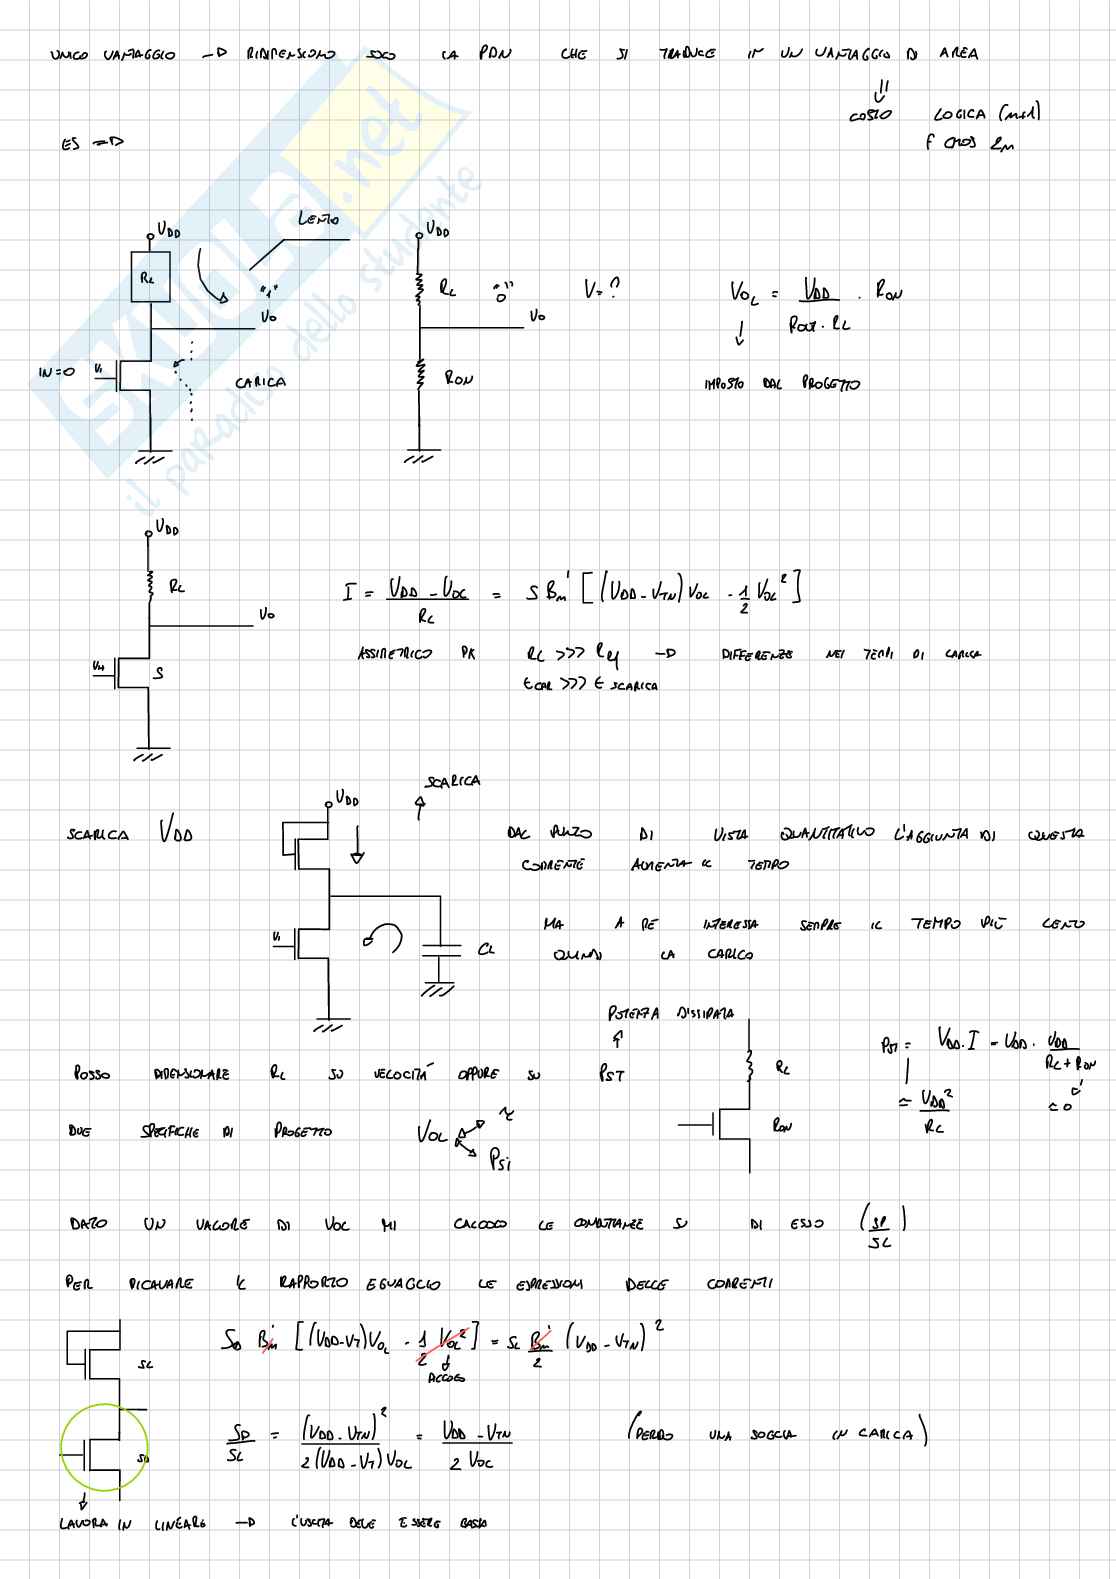 UNICO VANTAGGIO → RIDIMENSIONO SOLO LA PDN CHE SI TRADUCE IN UN VANTAGGIO DI AREA
COSTO LOGICA (n+1)
F CMOS 2n
ES →
SKUOLA.net
il paradiso dello studente
VDD
RL
LENTO
"1"
V0
IN=0
Vi
CARICA
VDD
RL "0" V=?
V0
RON
VOL = VDD / ROUT · RL · RON
IMPOSTO DAL PROGETTO
VDD
RL
V0
VH
S
I = VDD - VOL / RL = S Bn' [(VDD - VTN) VOL - 1/2 VOL²]
ASSIMETRICO PK RL >>> Req → DIFFERENZE NEI TEMPI DI CARICA
tCAR >>> t SCARICA
SCARICA VDD
VDD
SCARICA
Vi
CL
DAL PUNTO DI VISTA QUANTITATIVO L'AGGIUNTA DI QUESTA
CORRENTE AUMENTA IL TEMPO
MA A ME INTERESSA SEMPRE IL TEMPO PIÙ LENTO
QUINDI LA CARICO
POTENZA DISSIPATA
POSSO DIMENSIONARE RL SU VELOCITÀ OPPURE SU PST
RL
RON
PST = VDD · I = VDD · VDD / RL + RON
≈ 0
≈ VDD² / RL
DUE SPECIFICHE DI PROGETTO VOL τ
PST
DATO UN VALORE DI VOL MI CALCOLO LE SU DI ESSO (SD / SL)
PER RICAVARE IL RAPPORTO EGUAGLIO LE ESPRESSIONI DELLE CORRENTI
SL
SD
SD Bn' [(VDD - VT) VOL - 1/2 VOL²] = SL Bn'/2 (VDD - VTN)²
SD / SL = (VDD - VTN)² / 2 (VDD - VT) VOL = VDD - VTN / 2 VOL
(PERDO UNA SOGLIA IN CARICA)
LAVORA IN LINEARE → L'USCITA DEVE ESSERE BASSA